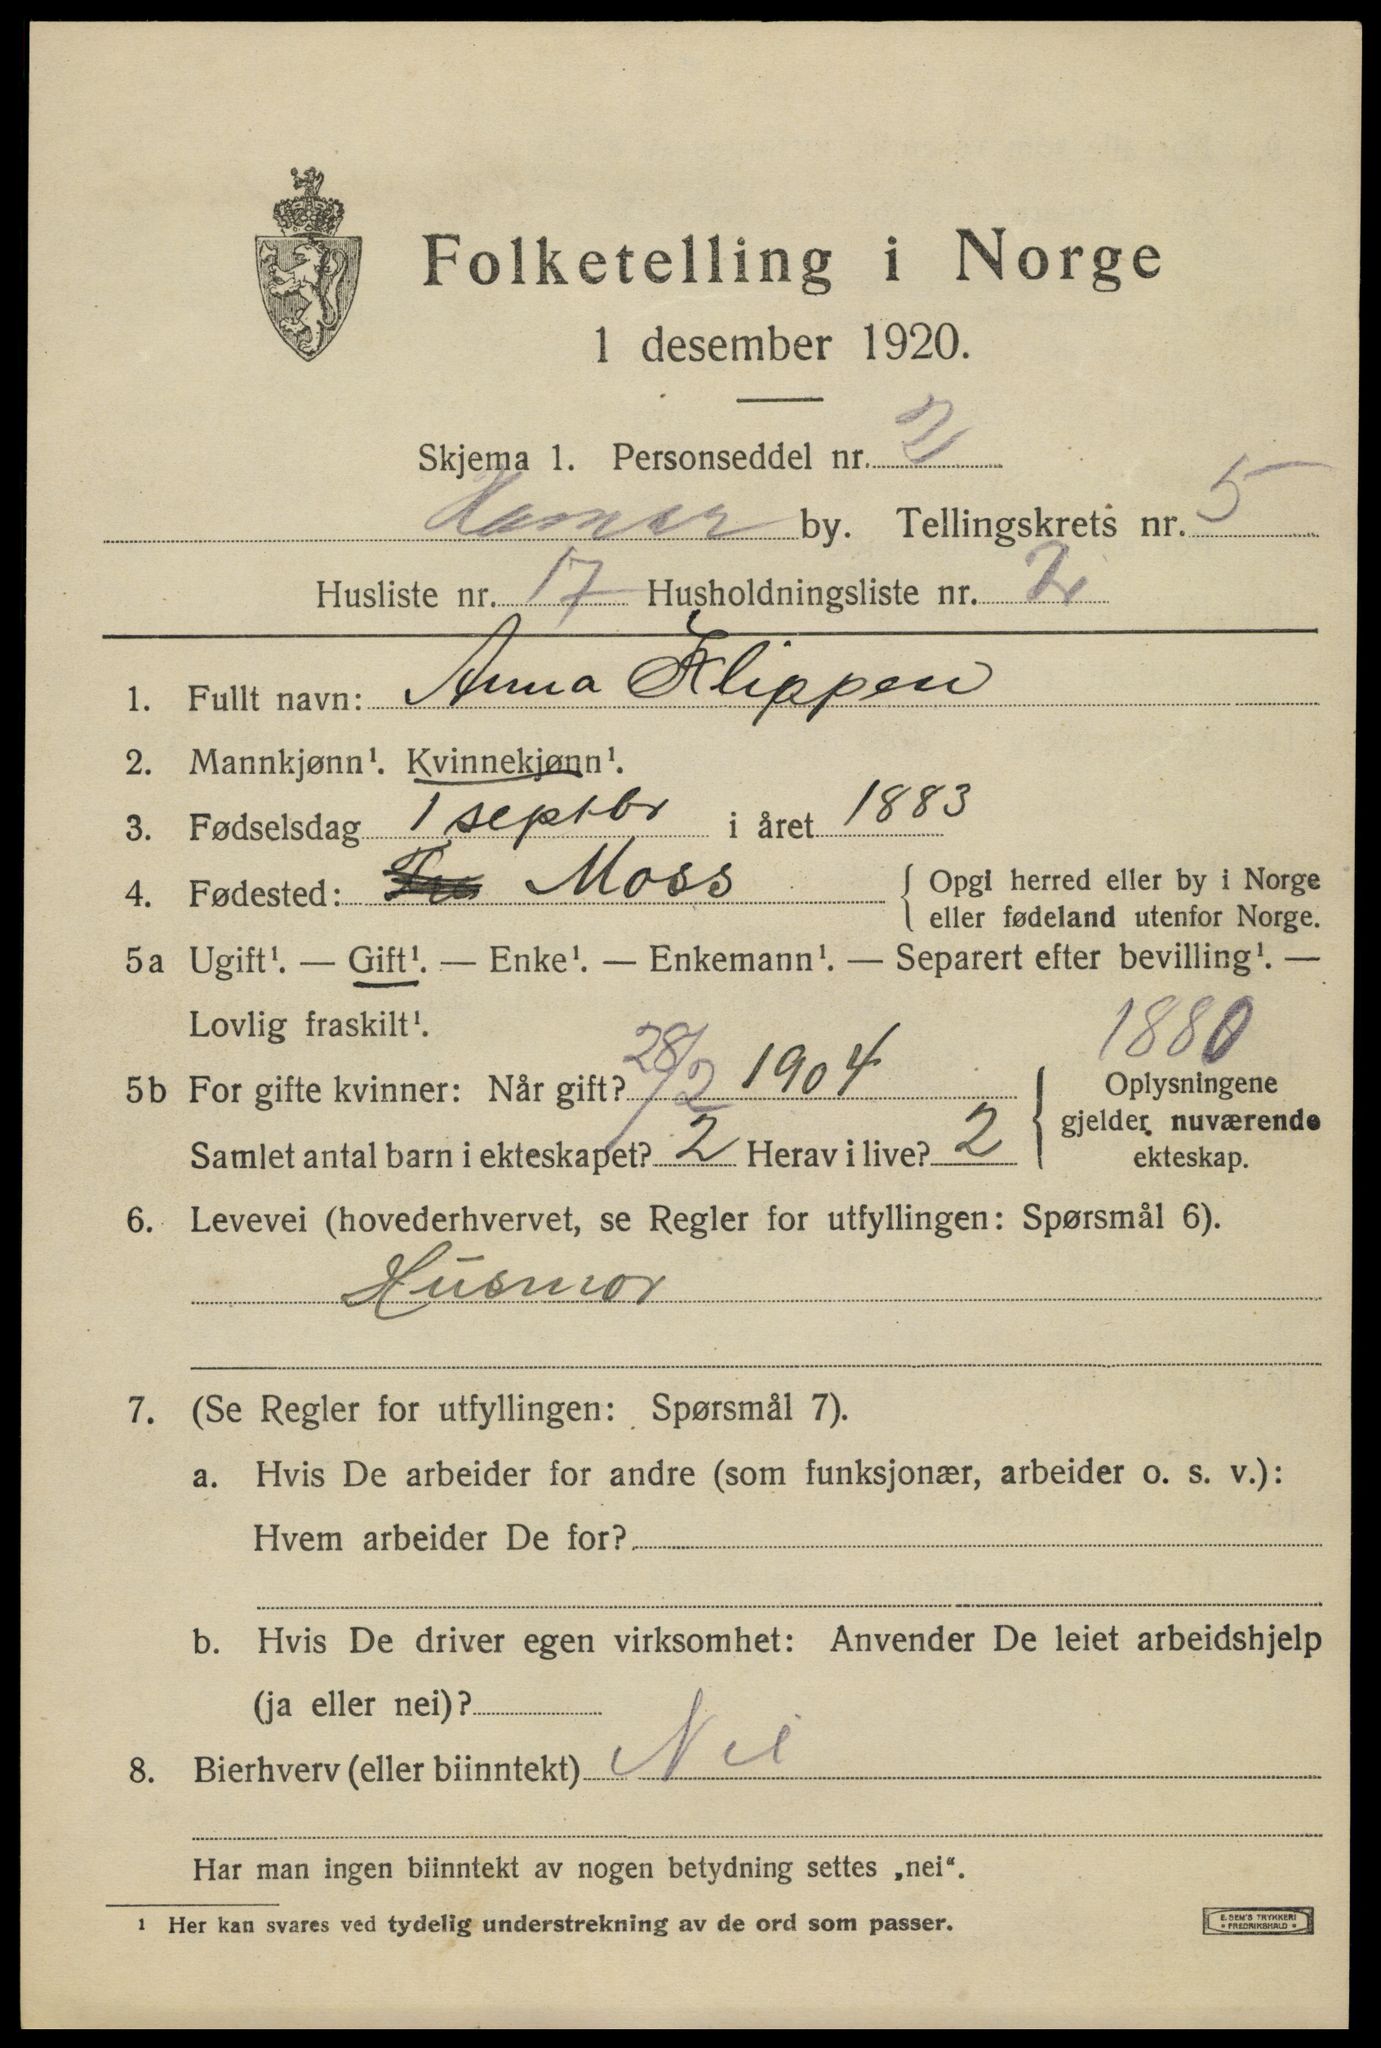 Folketelling i Norge
1 desember 1920.
Skjema 1. Personseddel nr. 2
Hamar by. Tellingskrets nr. 5
Husliste nr. 17 Husholdningsliste nr. 2
1. Fullt navn: Anna Klippen
2. Mannkjønn¹. Kvinnekjønn¹.
3. Fødselsdag 1 septbr i året 1883
4. Fødested: Moss { Opgi herred eller by i Norge
eller fødeland utenfor Norge.
5a Ugift¹. — Gift¹. — Enke¹. — Enkemann¹. — Separert efter bevilling¹. —
Lovlig fraskilt¹.
1880
5b For gifte kvinner: Når gift? 28/2 1904 { Oplysningene
gjelder nuværende
Samlet antal barn i ekteskapet? 2 Herav i live? 2 ekteskap.
6. Levevei (hovederhvervet, se Regler for utfyllingen: Spørsmål 6).
Husmor
7. (Se Regler for utfyllingen: Spørsmål 7).
a. Hvis De arbeider for andre (som funksjonær, arbeider o. s. v.):
Hvem arbeider De for?
b. Hvis De driver egen virksomhet: Anvender De leiet arbeidshjelp
(ja eller nei)?
8. Bierhverv (eller biinntekt) Nei
Har man ingen biinntekt av nogen betydning settes „nei“.
¹ Her kan svares ved tydelig understrekning av de ord som passer.
E. SEM'S TRYKKERI
• FREDRIKSHALD •